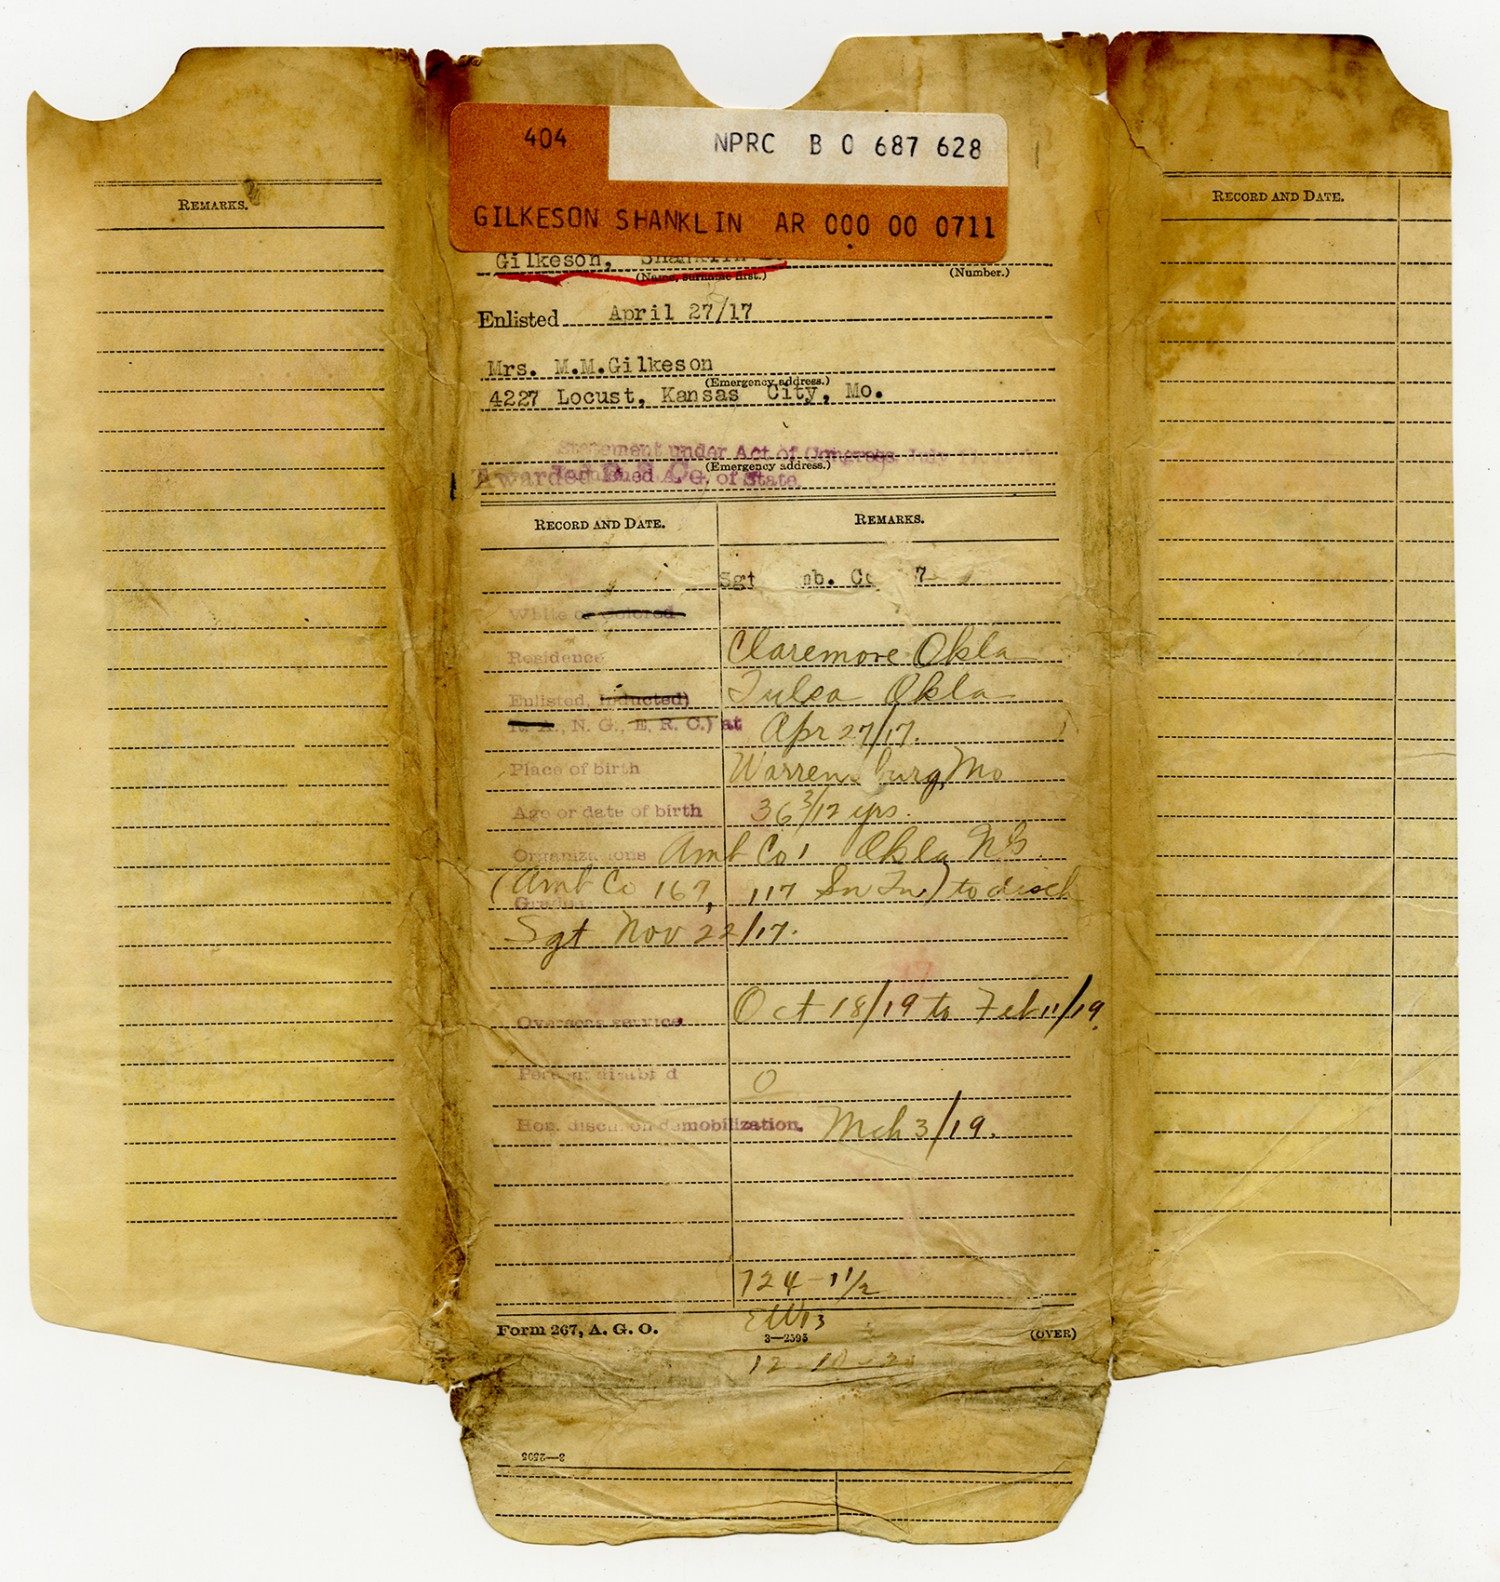 404 NPRC B 0 687 628
GILKESON SHANKLIN AR 000 00 0711
REMARKS.
Gilkeson, Shanklin
(Name, surname first.) (Number.)
Enlisted April 27/17
Mrs. M.M.Gilkeson
(Emergency address.)
4227 Locust, Kansas City, Mo.
Statement under Act of Congress July
(Emergency address.)
Awarded D. S. C.
A. G. of State
RECORD AND DATE. REMARKS.
Sgt mb. Co 7
White or colored
Residence Claremore Okla
Enlisted, inducted) Tulsa Okla
R. A., N. G., E. R. C.) at Apr 27/17.
Place of birth Warrensburg, Mo
Age or date of birth 36 3/12 yrs.
Organizations Amb Co 1 Okla NG.
(Amb Co 167, 117 Sn Tn) to disch
Sgt Nov 22/17.
17
Overseas service. Oct 18/19 to Feb 11/19.
0
Hon. disch. on demobilization. Mch 3/19.
724-1 1/2
Form 267, A. G. O. 3—2595 (OVER)
3—2595
RECORD AND DATE.